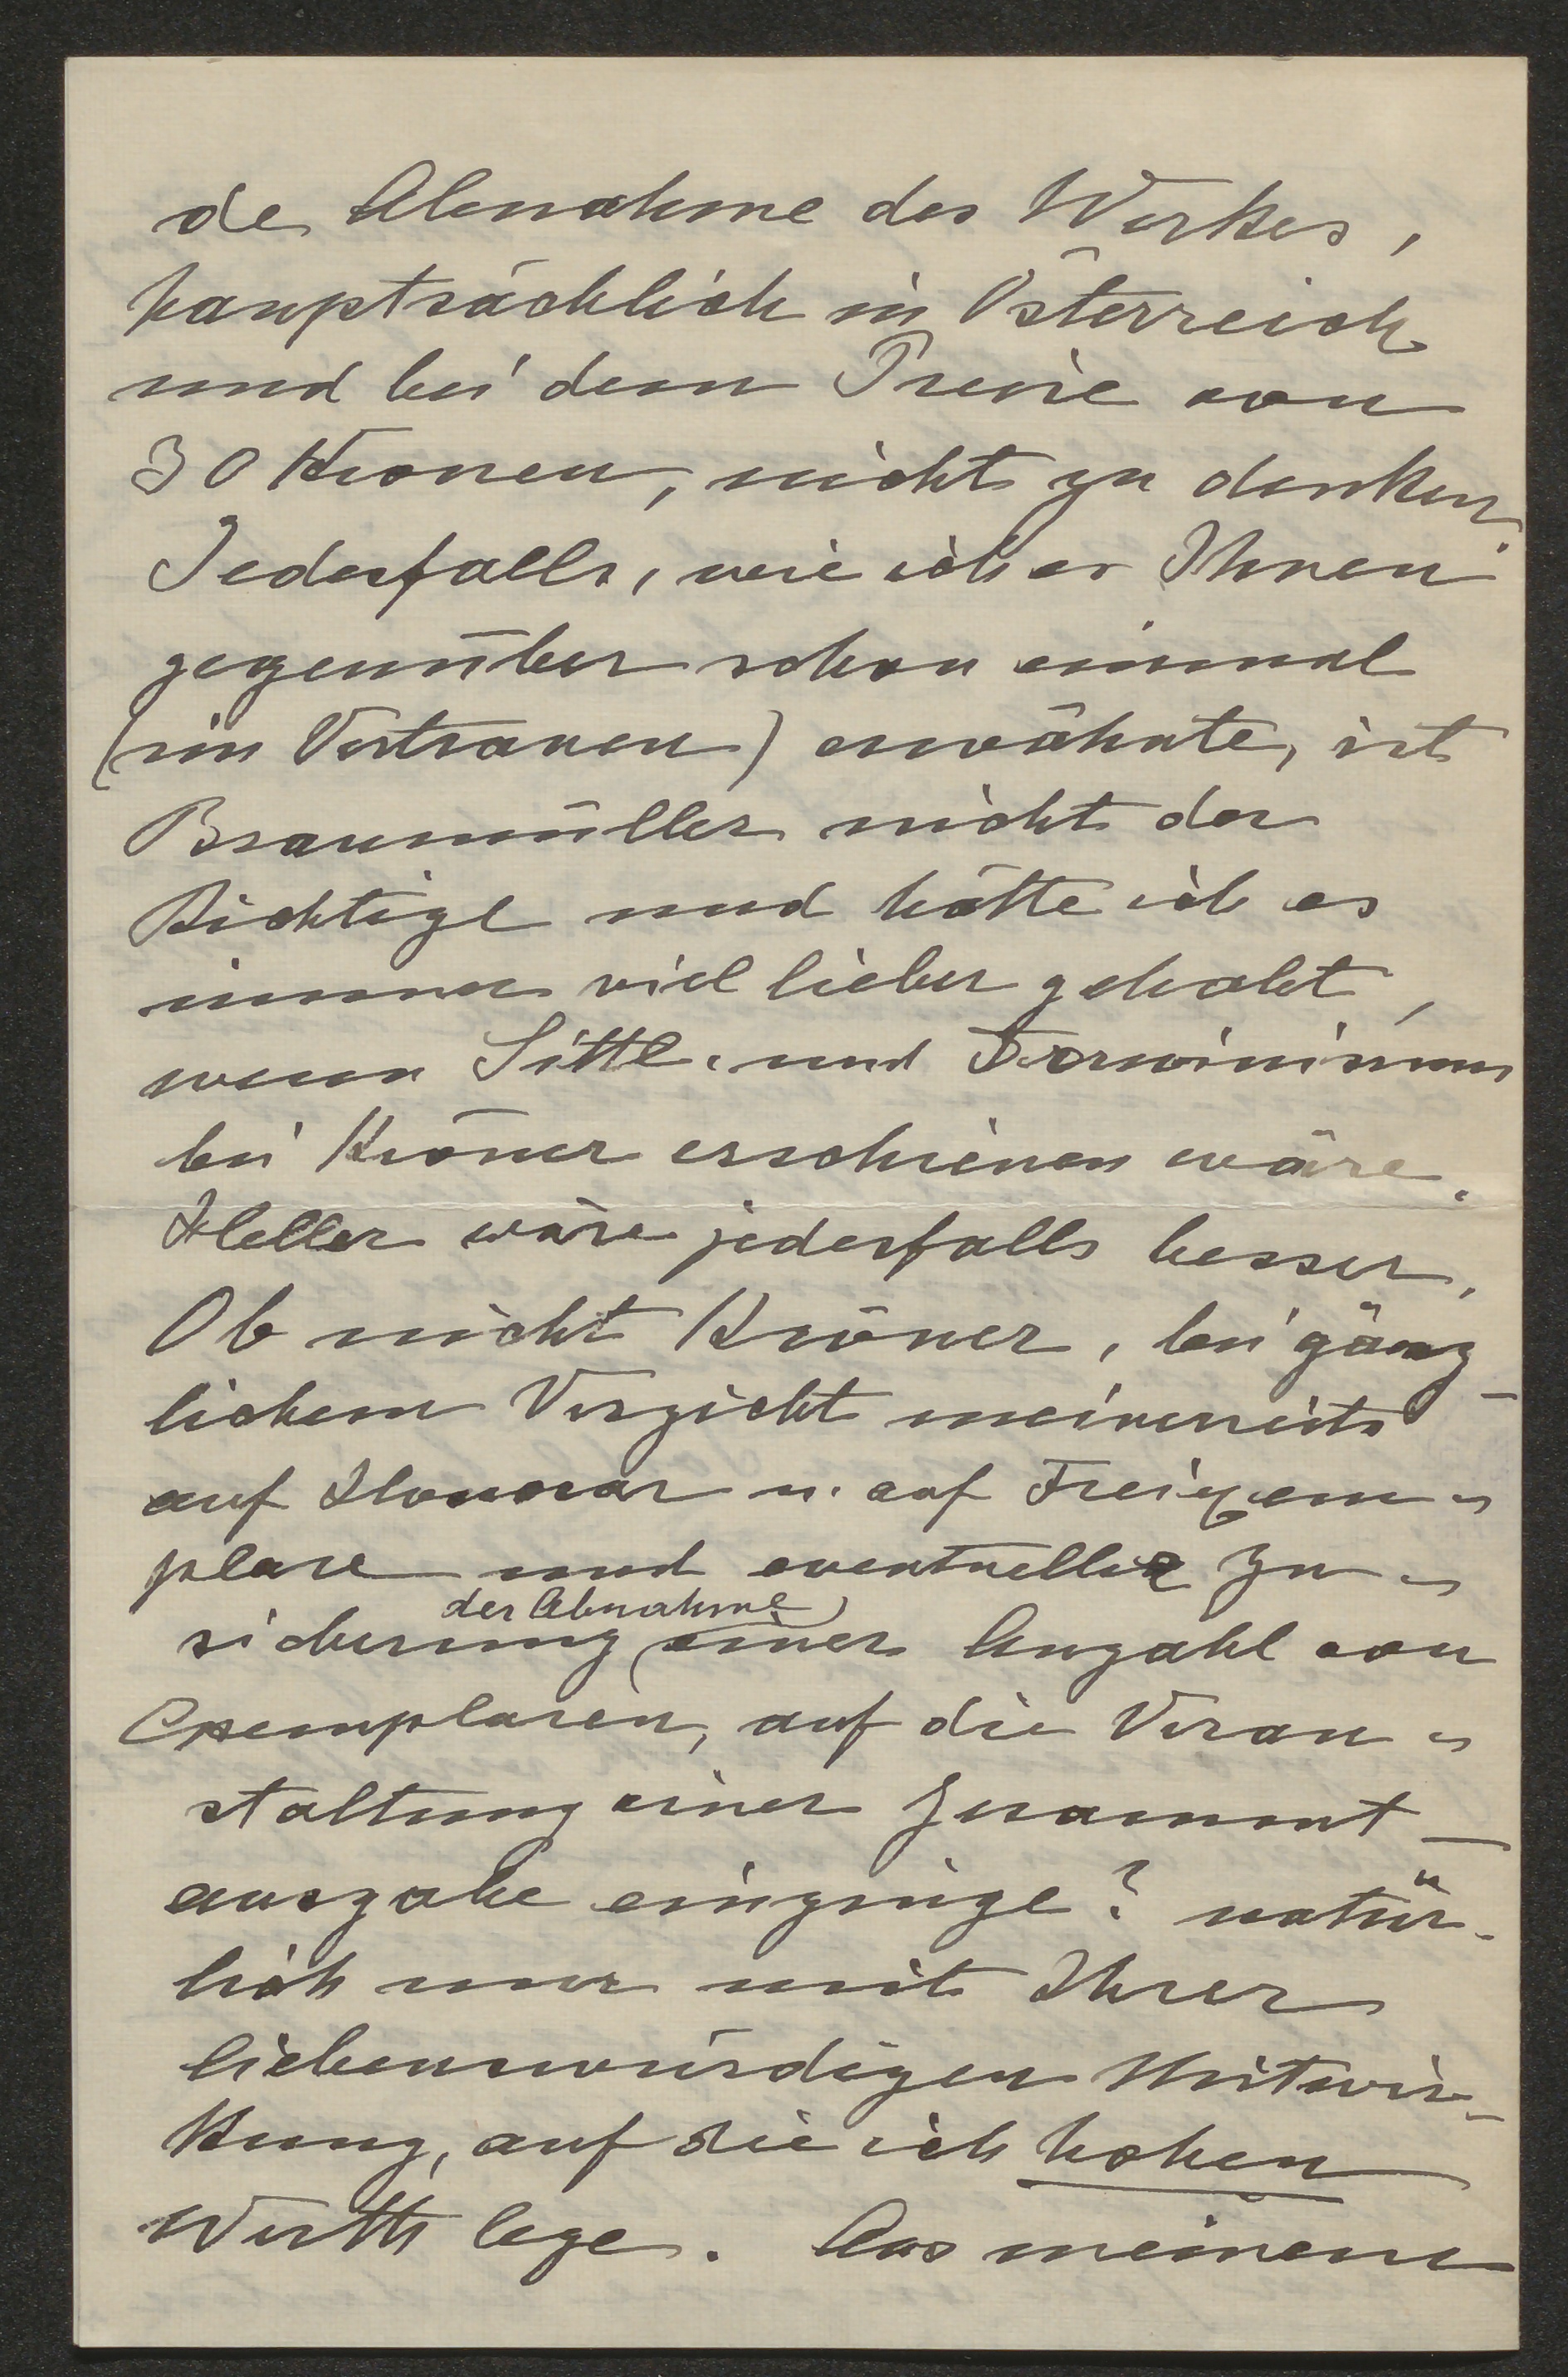 de Abnahme des Werkes,
hauptsächlich in Österreich
und bei dem Preise von
30 Kronen, nicht zu denken.
Jedesfalls, wie ich es Ihnen
gegenüber schon einmal
(im Vertrauen) erwähnte, ist
Braumüller nicht der
Richtige und hätte ich es
immer viel lieber gehabt,
wenn Sittl. und Darwinismus
bei Kröner erschienen wäre.
Heller wäre jedesfalls besser.
Ob nicht Kröner, bei gänz-
lichem Verzicht meinerseits
auf Honorar u. auf Freiexem-
plare und eventueller Zu-
der Abnahme
sicherung einer Anzahl von
Exemplaren, auf die Veran-
staltung einer Gesammt-
ausgabe einginge? natür-
lich nur mit Ihrer
liebenswürdigen Mitwir-
kung, auf die ich hohen
Werth lege. Aus meinem